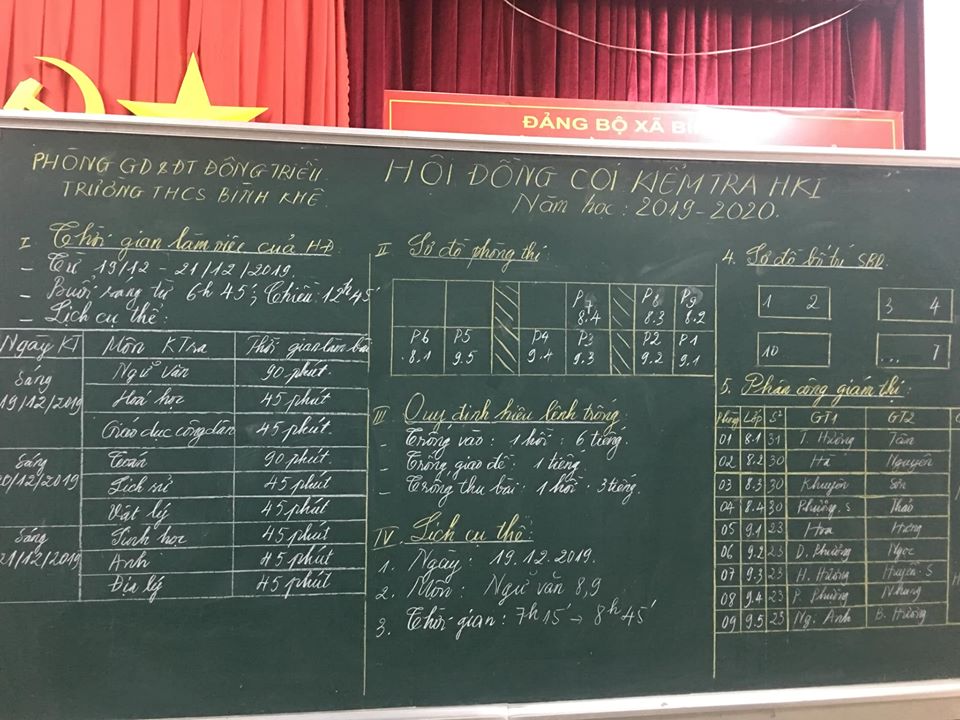 ĐẢNG BỘ XÃ BÌ
PHÒNG GD&ĐT ĐÔNG TRIỀU
TRƯỜNG THCS BÌNH KHÊ.
HỘI ĐỒNG COI KIỂM TRA HKI
Năm học: 2019-2020.
I Thời gian làm việc của HĐ:
- Từ 19/12 - 21/12/2019.
- Buổi sáng từ 6h 45'; Chiều: 12h 45'
- Lịch cụ thể:
Ngày KT Môn KTra Thời gian làm bài
Sáng 19/12/2019 Ngữ văn 90 phút.
Hoá học 45 phút
Giáo dục công dân 45 phút
Sáng 20/12/2019 Toán 90 phút
Lịch sử 45 phút
Vật lý 45 phút
Sáng 21/12/2019 Sinh học 45 phút
Anh 45 phút
Địa lý 45 phút
II Sơ đồ phòng thi:
P7 8.4 P8 8.3 P9 8.2
P6 8.1 P5 9.5 P4 9.4 P3 9.3 P2 9.2 P1 9.1
III Quy định hiệu lệnh trống
- Trống vào: 1 hồi: 6 tiếng.
- Trống giao đề: 1 tiếng.
- Trống thu bài: 1 hồi: 3 tiếng.
IV. Lịch cụ thể:
1. Ngày: 19.12.2019.
2. Môn: Ngữ văn 8,9
3. Thời gian: 7h 15' → 8h 45'
4. Sơ đồ bố trí SBD
1 2 3 4
10 ... 7
5. Phân công giám thị:
Phòng Lớp GT1 GT2
01 8.1 31 T. Hường Tân
02 8.2 30 Hà Nguyên
03 8.3 30 Khuyên Sơn
04 8.4 30 Phường.S Thảo
05 9.1 23 Hoa
06 9.2 23 D. Phường Ngọc
07 9.3 23 H. Hương Huyền.S
08 9.4 23 P. Phượng Nhung
09 9.5 23 Ng. Anh B. Hường